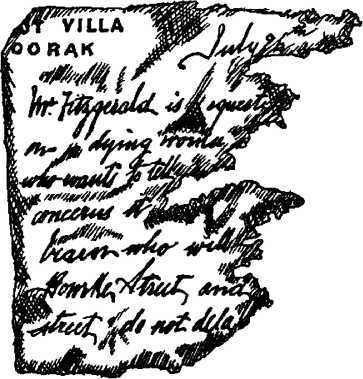 OT VILLA
OORAK
July 2
Mr. Fitzgerald is equest
on dying woma
who wants to tell
concerns
bearer who will
Bourke Street, and
street do not dela